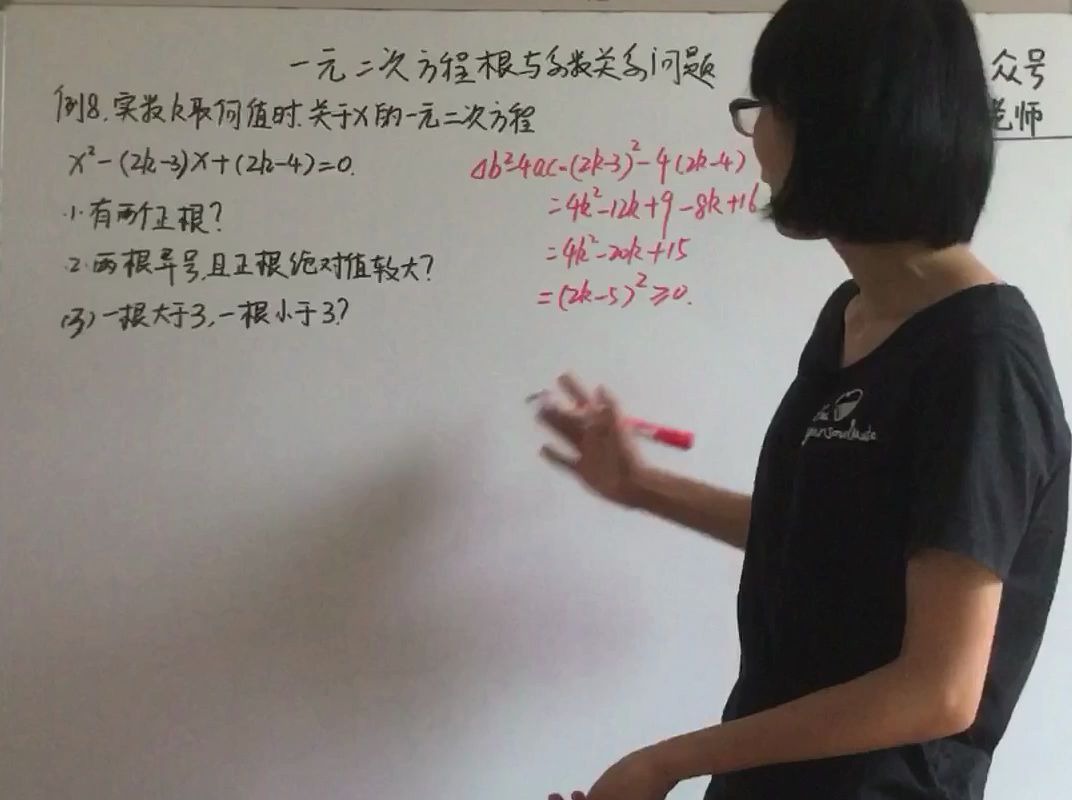 一元二次方程根与系数关系问题
众号
老师
例8.实数k取何值时.关于x的一元二次方程
x²-(2k-3)x+(2k-4)=0.
1.有两个正根?
2.两根异号,且正根绝对值较大?
(3)一根大于3,一根小于3?
Δb²-4ac=(2k-3)²-4(2k-4)
=4k²-12k+9-8k+16
=4k²-20k+15
=(2k-5)²≥0.